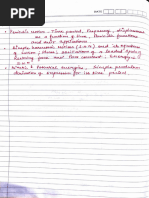 DATE
• Periodic motion - Time period, Frequency, displacement
as a function of time, Periodic functions
and their applications.
• Simple harmonic motion (S.H.M) and its equations
of motion; Phase; oscillations of a loaded spring;
restoring force and force constant; energy in
SHM
• Kinetic & Potential energies, Simple pendulum
derivation of expression for its time period.